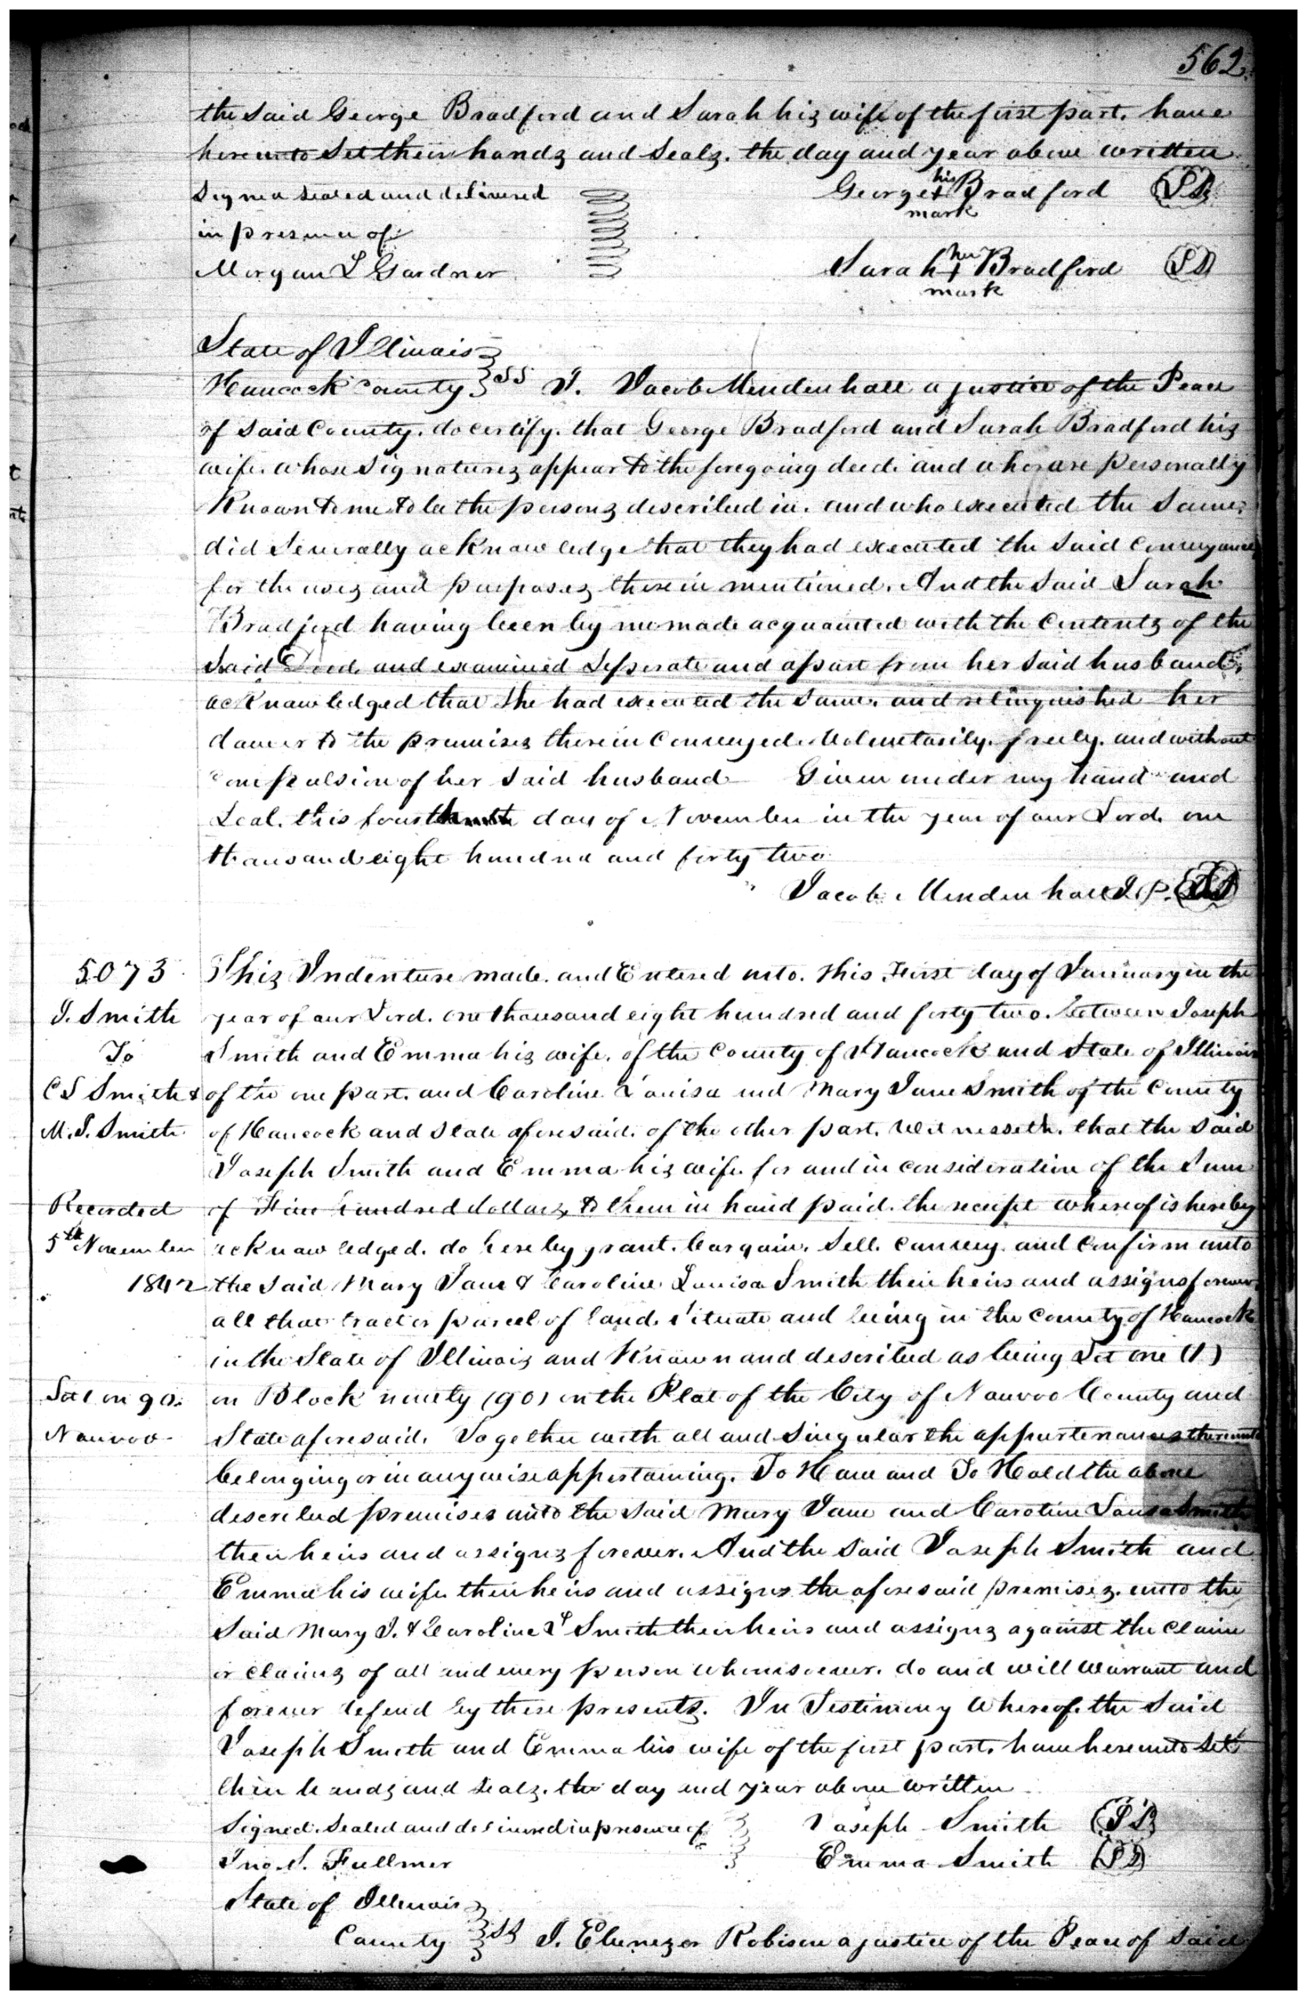 562
the said George Bradford and Sarah his wife of the first part. have
hereunto set their hands and seals. the day and year above written
Signed sealed and delivered
in presence of
Morgan L Gardner
George his + mark Bradford LS
Sarah her + mark Bradford LS
State of Illinois
Hancock County SS I. Jacob Mendenhall a justice of the Peace
of said County. do certify. that George Bradford and Sarah Bradford his
wife. whose signatures appear to the foregoing deed. and who are personally
Known to me to be the persons described in. and who executed the same.
did severally acknowledge that they had executed the said conveyance
for the uses and purposes therein mentioned. And the said Sarah
Bradford having been by me made acquainted with the contents of the
said Deed. and examined seperate and apart from her said husband.
acknowledged that she had executed the same. and relinquished her
dower to the premises therein conveyed. Voluntarily. freely. and without
compulsion of her said husband Given under my hand and
Seal. this fourth day of November in the year of our Lord. one
thousand eight hundred and forty two
Jacob Mendenhall J. P. LS
5073
J. Smith
To
C L Smith &
M. J. Smith
Recorded
5th November
1842
Lot 1 in 90.
Nauvoo
This Indenture made. and Entered into. this First day of January in the
year of our Lord. one thousand eight hundred and forty two. between Joseph
Smith and Emma his wife. of the County of Hancock and State of Illinois
of the one part. and Caroline Louisa and Mary Jane Smith of the County
of Hancock and State aforesaid. of the other part. Witnesseth. that the said
Joseph Smith and Emma his wife. for and in consideration of the Sum
of Five hundred dollars, to them in hand paid. the receipt whereof is hereby
acknowledged. do hereby grant. bargain. Sell. convey. and confirm unto
the said Mary Jane & Caroline Louisa Smith their heirs and assigns forever
all that tract or parcel of land. situate and being in the County of Hancock
in the State of Illinois and Known and described as being Lot one (1)
on Block ninety (90) in the Plat of the City of Nauvoo County and
State aforesaid. Together with all and Singular the appurtenances thereunto
belonging or in anywise appertaining. To Have and To Hold the above
described premises unto the said Mary Jane and Caroline Louisa Smith
their heirs and assigns forever. And the said Joseph Smith and
Emma his wife. their heirs and assigns the aforesaid premises. unto the
said Mary J. & Caroline L Smith their heirs and assigns against the claim
or claims of all and every person whomsoever. do and will warrant and
forever defend by these presents. In Testimony Whereof. the said
Joseph Smith and Emma his wife of the first part. have hereunto set
their hands and seals. the day and year above written
Signed. Sealed and delivered in presence of
Jno. S. Fullmer
Joseph Smith LS
Emma Smith LS
State of Illinois
County SS I. Ebenezer Robison a justice of the Peace of said